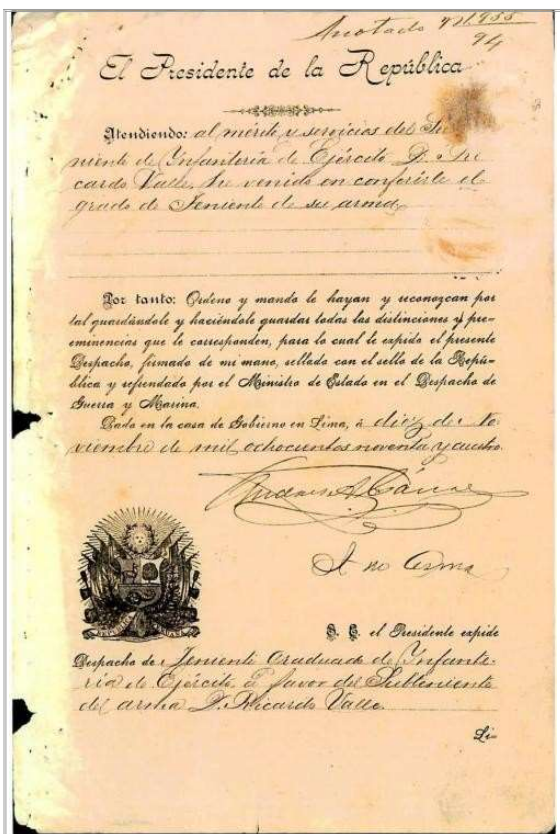 Anotado
94
El Presidente de la República
Atendiendo: al mérito y servicios del Sub
niente de Infantería de Ejército D. Ri
cardo Valle, he venido en conferirle el
grado de Teniente de su arma,
Por tanto: Ordeno y mando le hayan y reconozcan por
tal guardándole y haciéndole guardar todas las distinciones y pre-
eminencias que le corresponden, para lo cual le expido el presente
Despacho, firmado de mi mano, sellado con el sello de la Repú-
blica y refrendado por el Ministro de Estado en el Despacho de
Guerra y Marina.
Dado en la casa de Gobierno en Lima, á diez de No
viembre de mil ochocientos noventa y cuatro.
S. E. el Presidente expide
Despacho de Teniente Graduado de Infante-
ría de Ejército, á favor del Subteniente
del arma D. Ricardo Valle.
Li-